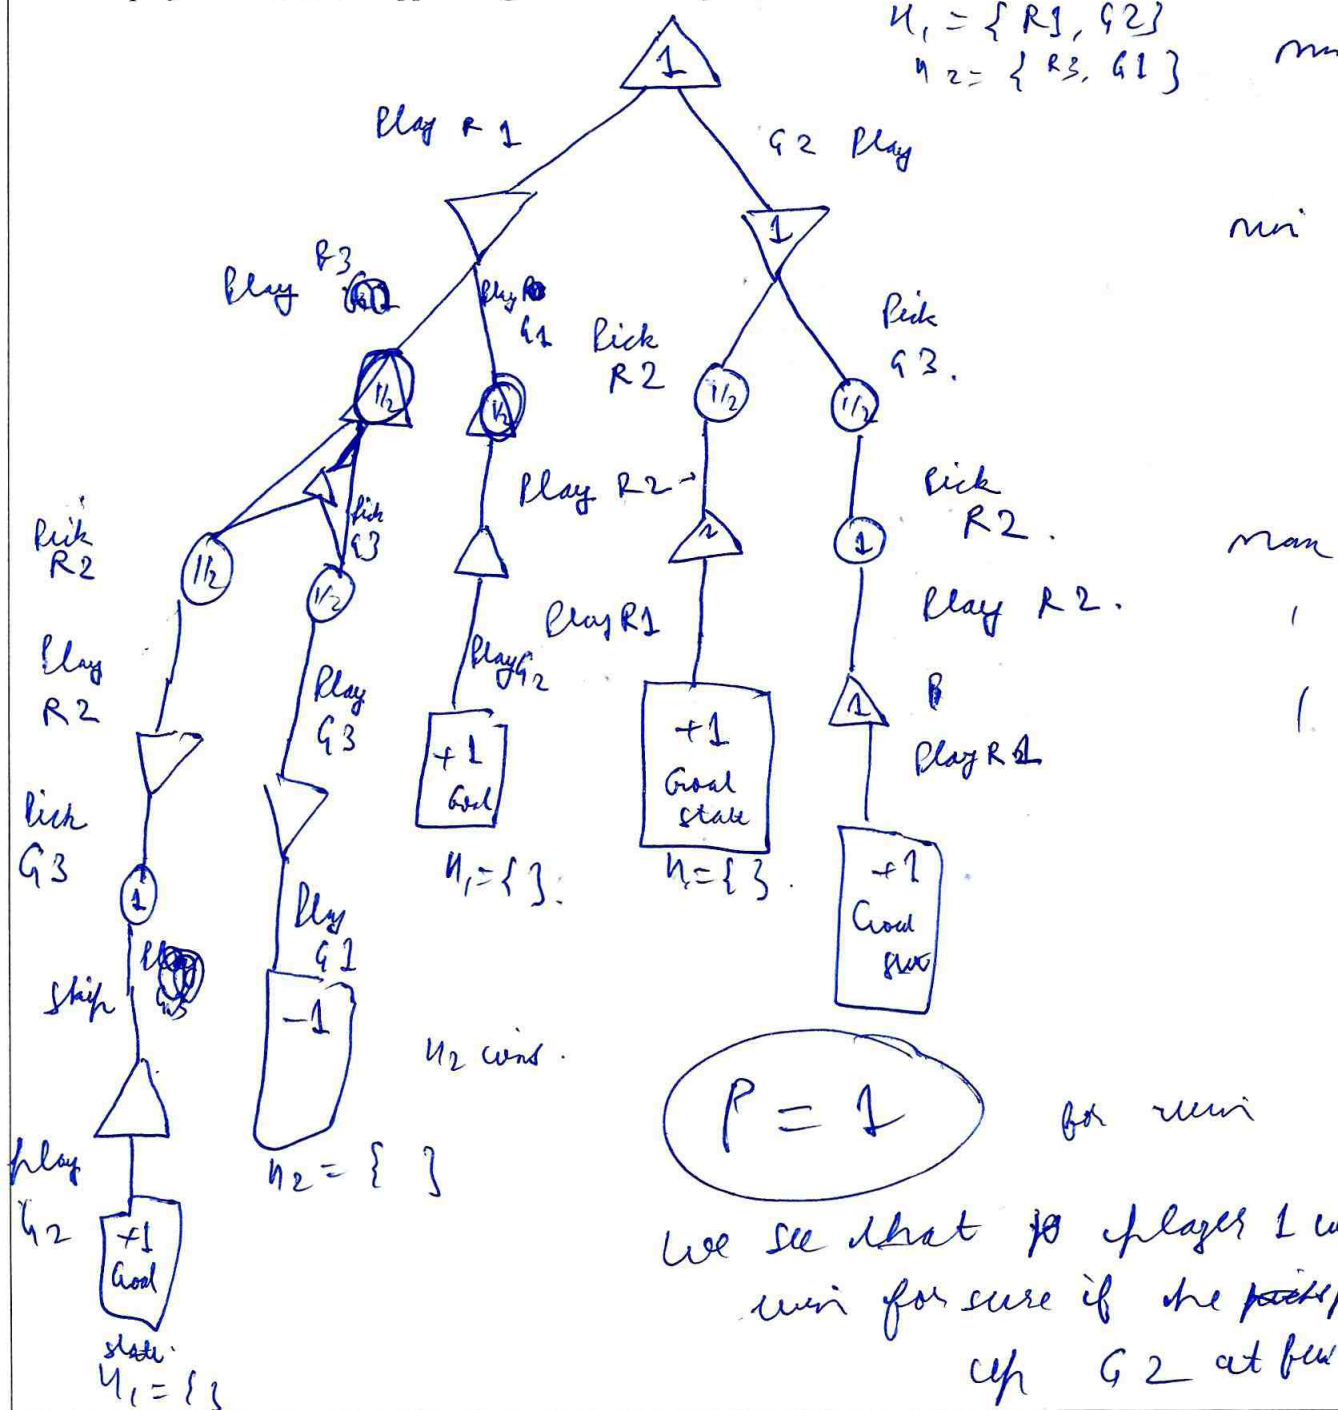 n₁ = { R1, G2}
n2 = { R3, G1 }
1
Play R 1
G2 Play
1
Play R3
Play
G1
Pick
R2
Pick
G3.
1/2
1/2
1/2
1/2
Pick
R2
Pick
G3
Play R2
Pick
R2.
max
1/2
1/2
1
1
Play R1
Play R2.
Play
R2
Play
G3
Play G2
1
Play R1
+1
Goal
+1
Goal
state
Pick
G3
n₁={ }.
n₁={ }.
+1
Goal
state
1
Play
G1
Skip
-1
n2 wins.
P = 1
for win
Play
G2
n2 = { }
+1
Goal
state.
n₁ = { }
we see that player 1
win for sure if she
up G2 at